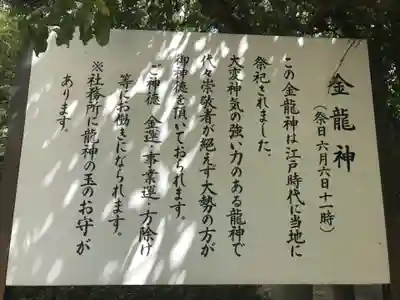 金龍神
(祭日 六月六日十一時)
この金龍神は江戸時代に当地に
祭祀されました。
大変神気の強い力のある龍神で
代々崇敬者が絶えず大勢の方が
御神徳を頂いておられます。
ご神徳 金運・事業運・方除け
等にお働きになられます。
※社務所に龍神の玉のお守が
あります。